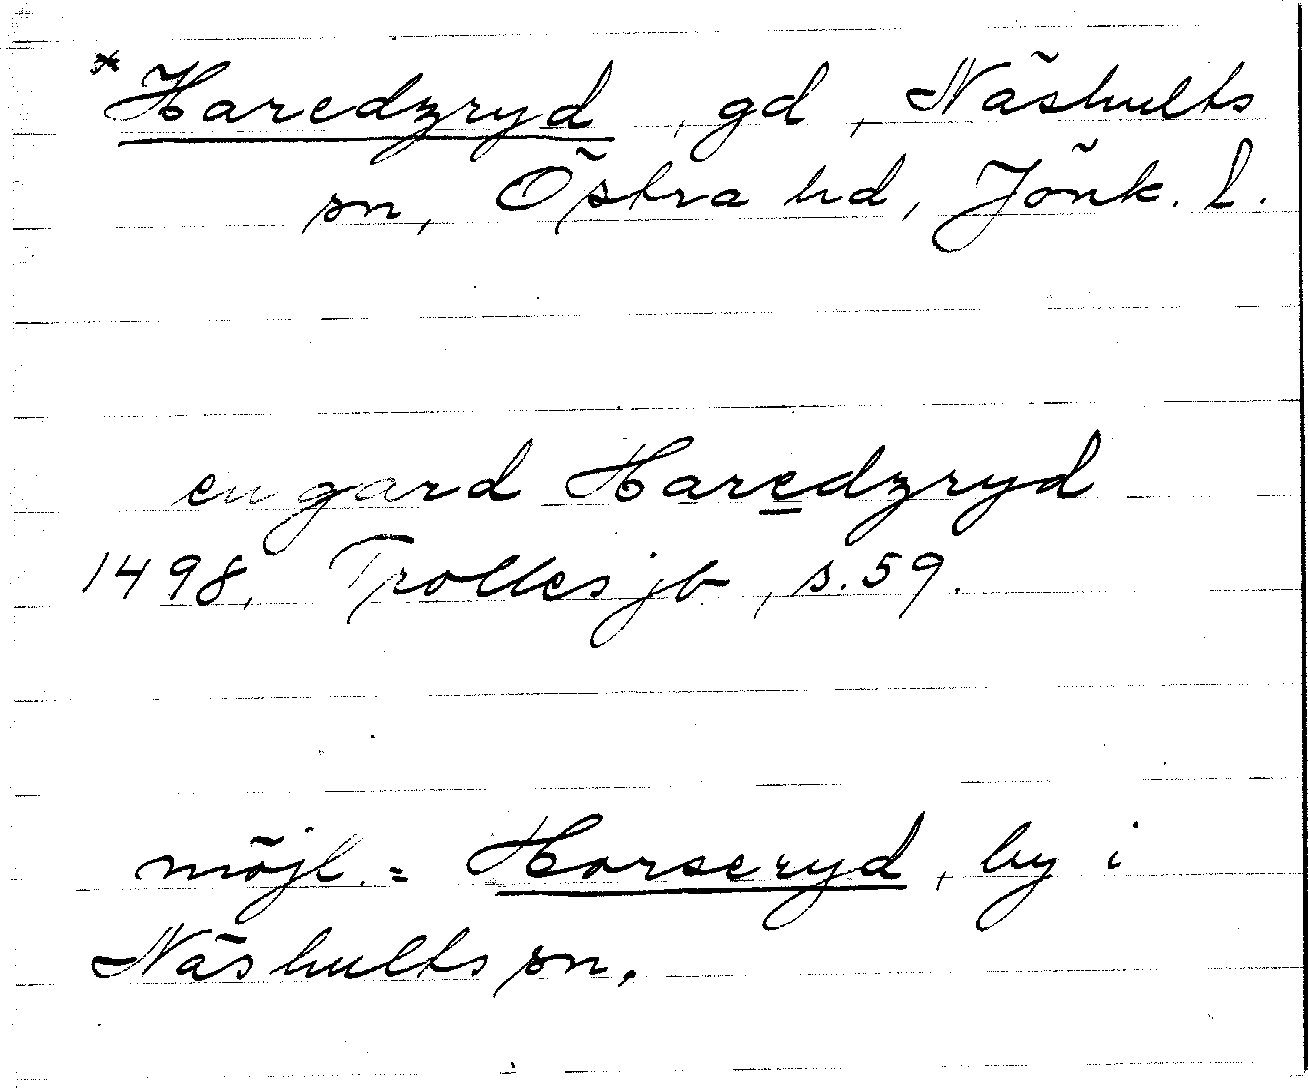 * Haredzryd, gd, Näshults
sn, Östra hd, Jönk. l.
en gard Haredzryd
1498, Trolles jb, s. 59.
möjl. = Horseryd, by i
Näshults sn.